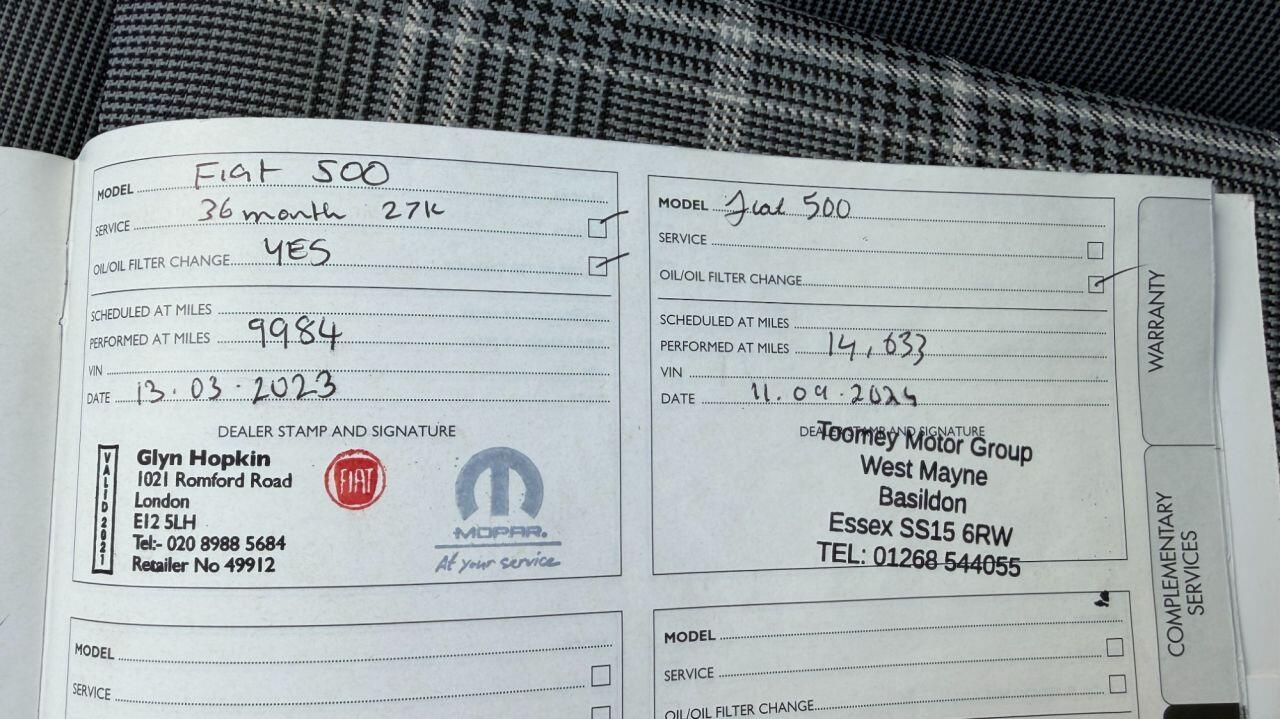 MODEL Fiat 500
SERVICE 36 month 27K
OIL/OIL FILTER CHANGE YES
SCHEDULED AT MILES
PERFORMED AT MILES 9984
VIN
DATE 13.03.2023
DEALER STAMP AND SIGNATURE
VALID 2021
Glyn Hopkin
1021 Romford Road
London
E12 5LH
Tel:- 020 8988 5684
Retailer No 49912
FIAT
MOPAR.
At your service
MODEL Fiat 500
SERVICE
OIL/OIL FILTER CHANGE
SCHEDULED AT MILES
PERFORMED AT MILES 14,633
VIN
DATE 11.09.2024
DEALER STAMP AND SIGNATURE
Toomey Motor Group
West Mayne
Basildon
Essex SS15 6RW
TEL: 01268 544055
MODEL
SERVICE
MODEL
SERVICE
OIL/OIL FILTER CHANGE
WARRANTY
COMPLEMENTARY
SERVICES